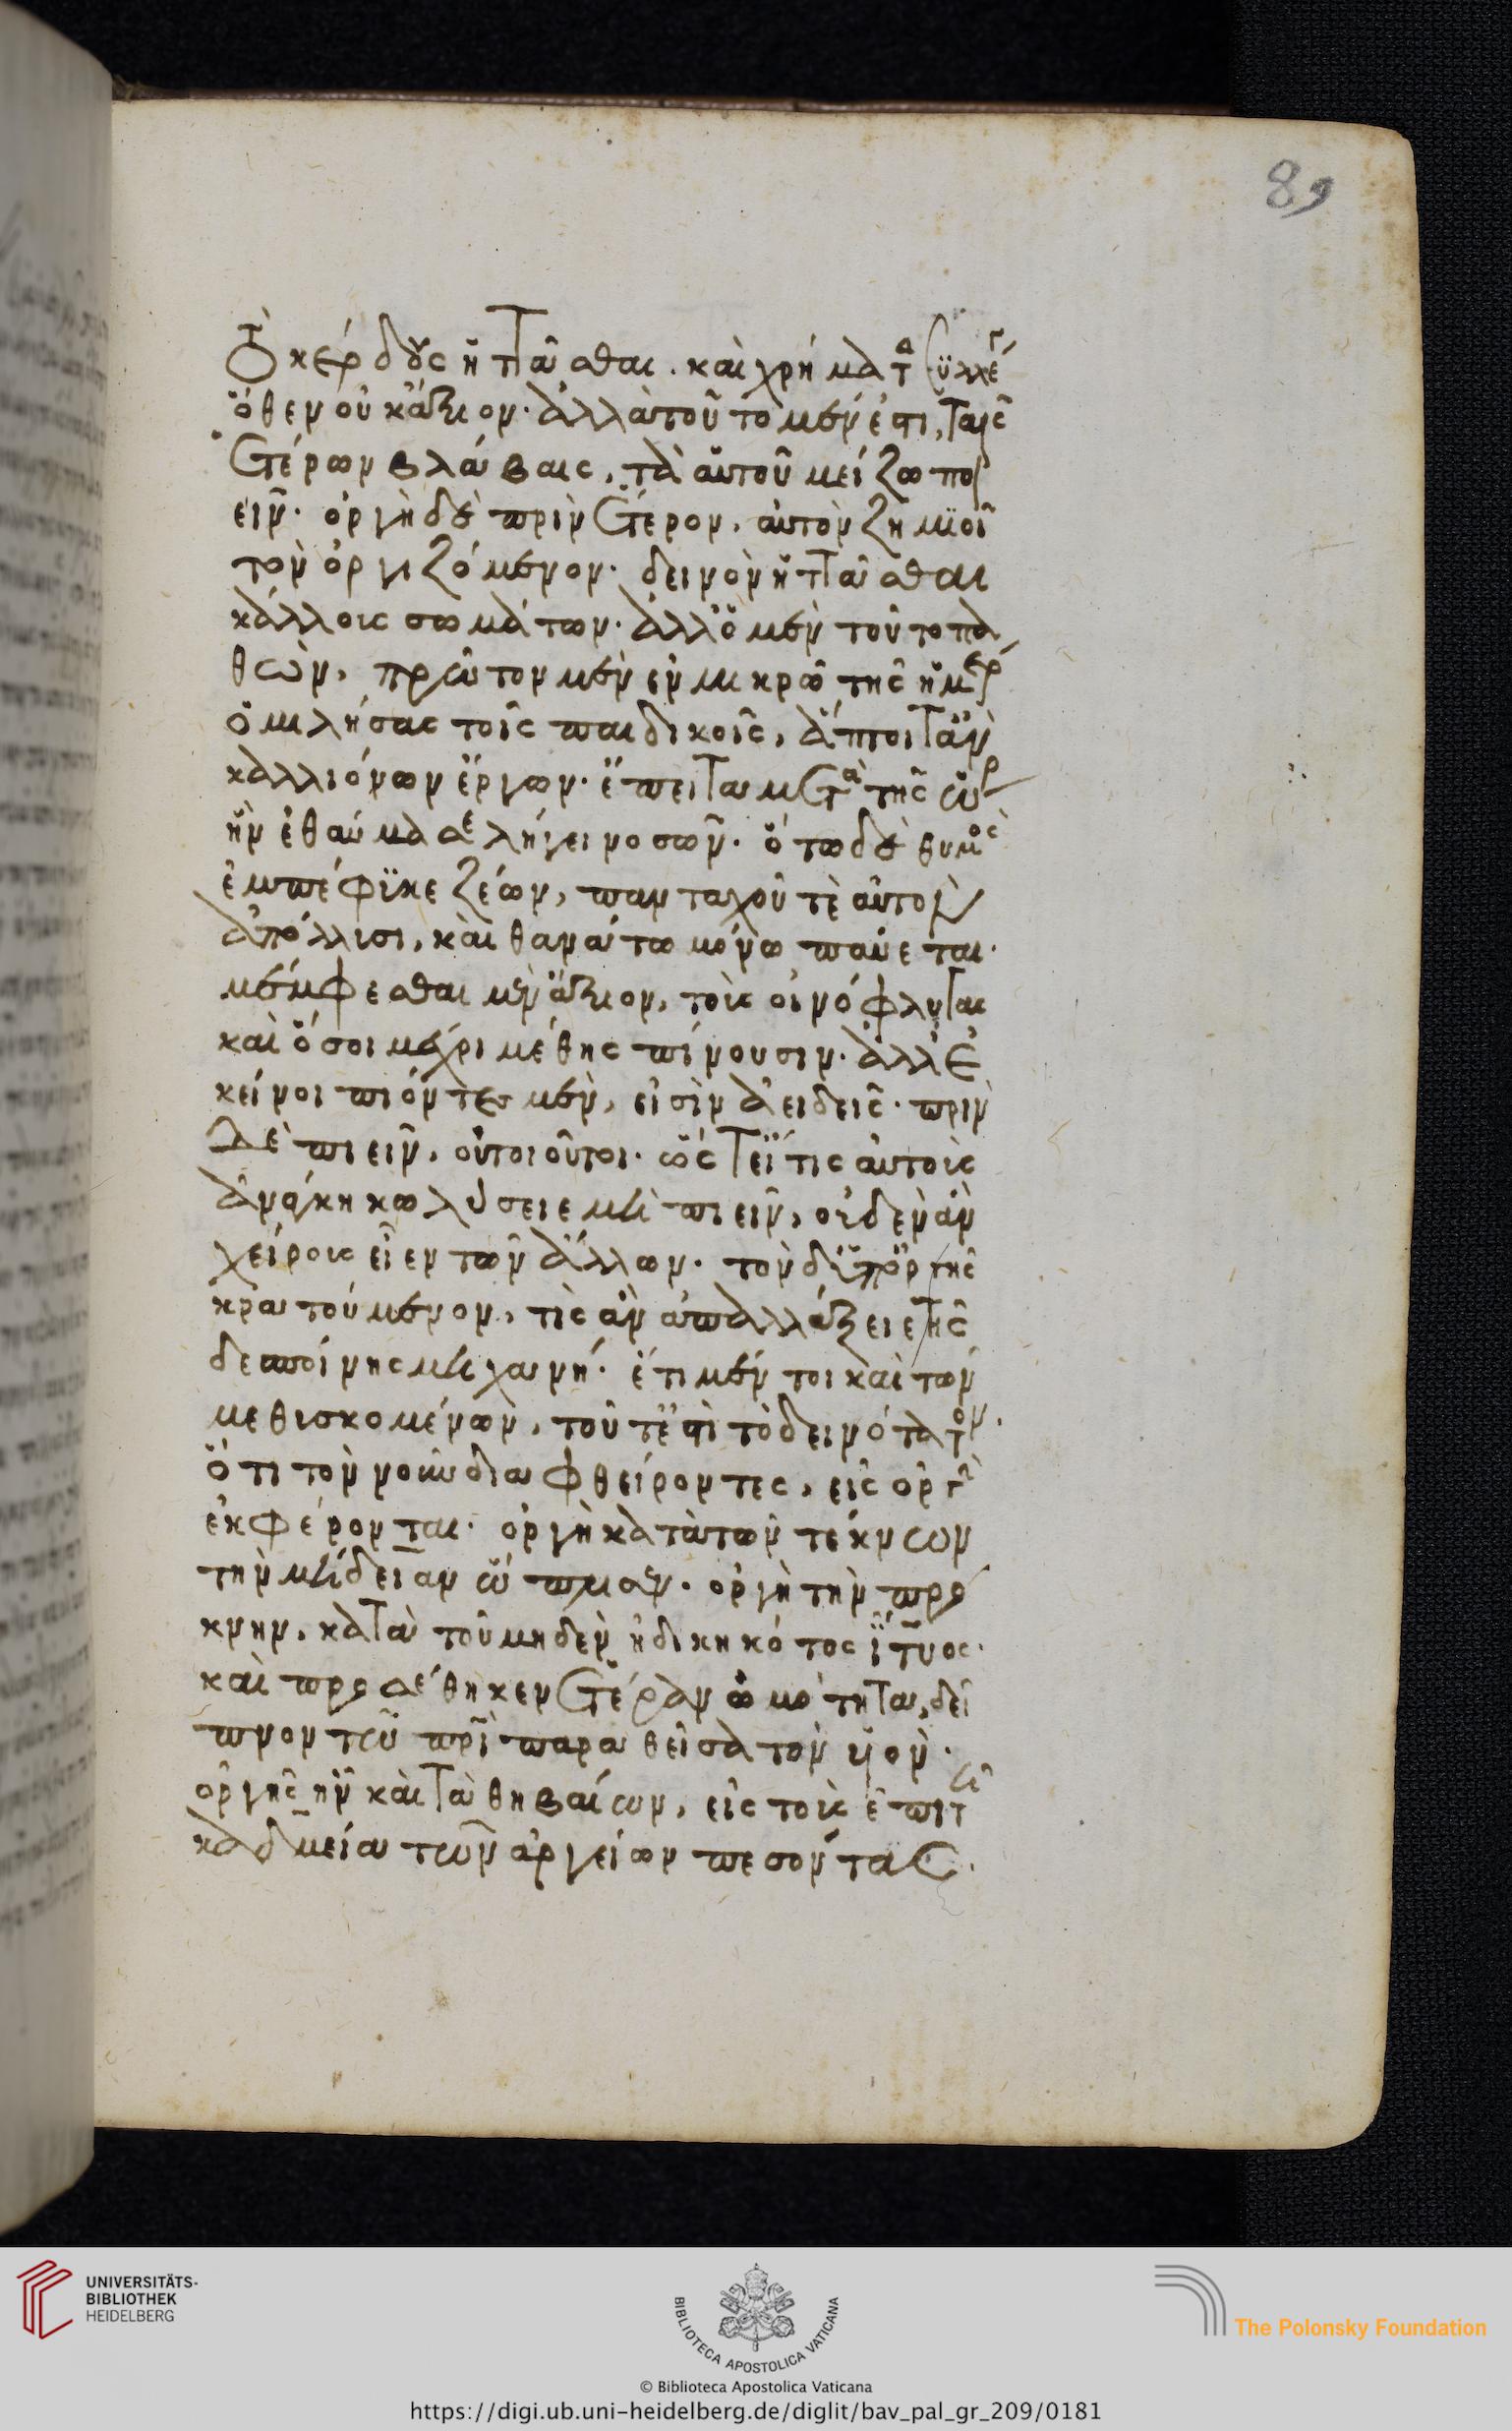 89
Τὸ κέρδους ἡττᾶσθαι. καὶ χρήματα συλλέγ
ὅθεν οὐκ ἄξιον. ἀλλὰ τοῦτο μέν ἐστι, ταῖς
ἑτέρων βλάβαις, τὰ αὑτοῦ μείζω ποι
εῖν. ὀργὴ δὲ πρὶν ἕτερον, αὐτὸν ζημιοῖ
τὸν ὀργιζόμενον. δεινὸν ἡττᾶσθαι
κάλλοις σωμάτων. ἀλλ' ὁ μὲν τοῦτο πα
θὼν, πρῶτον μὲν ἐν μικρῶ τῆς ἡμέρ
ὁμιλήσας τοῖς παιδικοῖς, ἅπτοιτ' ἂν
καλλιόνων ἔργων. ἔπειτα μετὰ τῆς ὥρ
ἣν ἐθαύμασε λήγει νοσῶν. ὅτω δὲ θυμὸς
ἐμπέφϋκε ζέων, πανταχοῦ τὲ αὐτὸν
ἀπόλλισι, καὶ θανάτω μόνω παύεται.
μέμφεσθαι μὲν ἄξιον, τοῖς οἰνόφλυξι
καὶ ὅσοι μέχρι μέθης πίνουσιν. ἀλλ' ἐ
κεῖνοι πιόντες μὲν, εἰσὶν ἀειδεῖς. πρὶν
δὲ πιεῖν, οὔτοι οὗτοι. ὥς τ' εἴ τις αὐτοῖς
ἀνάγκη κωλύσειε μὴ πιεῖν, οὐδὲν ἂν
χείροις εἶεν τῶν ἄλλων. τὸν δ' ὑπ' ὀργῆς
κρατούμενον, τίς ἂν ἀπαλλάξειε τῆς
δεσποίνης μηχανή. ἔτι μέν τοι καὶ τῶν
μεθισκομένων, τοῦτ' ἔστι τὸ δεινότατον.
ὅτι τὸν νοῦν διαφθείροντες, εἰς ὀργὴν
ἐκφέρονται. ὀργὴ κατὰ τῶν τέκνων
τὴν μήδειαν ὥπλισεν. ὀργὴ τὴν πρό
κνην, κατὰ τοῦ μηδὲν ἠδικηκότος ἴτυος.
καὶ προσέθηκεν ἑτέραν ὠμότητα, δεῖ
πνον τῶ πατρὶ παραθεῖσα τὸν υἱόν.
ὀργῆς ἦν καὶ τὰ θηβαίων, εἰς τοὺς ἐπὶ τῆ
καδμεία τῶν ἀργείων πεσόντας.
UNIVERSITÄTS-
BIBLIOTHEK
HEIDELBERG
BIBLIOTECA APOSTOLICA VATICANA
© Biblioteca Apostolica Vaticana
The Polonsky Foundation
https://digi.ub.uni-heidelberg.de/diglit/bav_pal_gr_209/0181